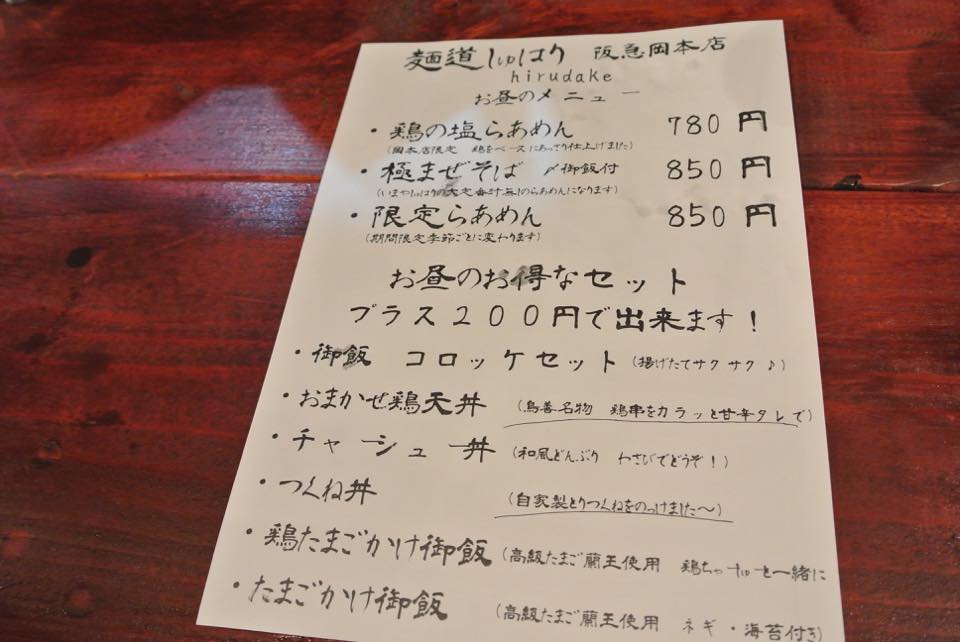 麺道しゅはり 阪急岡本店
hirudake
お昼のメニュー
・鶏の塩らあめん 780円
(岡本店限定 鶏をベースにあっさり仕上げました)
・極まぜそば 〆御飯付 850円
(いまやしゅはりの大定番汁無しのらあめんになります)
・限定らあめん 850円
(期間限定季節ごとに変わります)
お昼のお得なセット
プラス200円で出来ます！
・御飯 コロッケセット (揚げたてサクサク♪)
・おまかせ鶏天丼 (鳥善名物 鶏串をカラッと甘辛タレで)
・チャーシュー丼 (和風どんぶり わさびでどうぞ！)
・つくね丼 (自家製とりつくねをのっけました〜)
・鶏たまごかけ御飯 (高級たまご蘭王使用 鶏ちゃーしゅーと一緒に
・たまごかけ御飯 (高級たまご蘭王使用 ネギ・海苔付き)